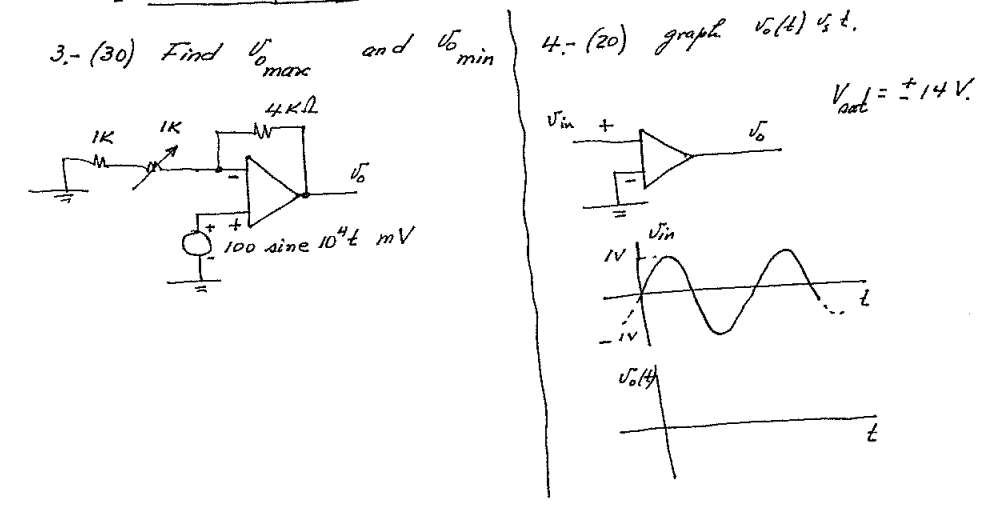 3.- (30) Find v₀ max and v₀ min
4KΩ
1K 1K
-
v₀
+ +
100 sine 10⁴t mV
-
4.- (20) graph v₀(t) vs t.
Vsat = ± 14 V.
vin + v₀
-
vin
1V
t
- 1V
v₀(t)
t